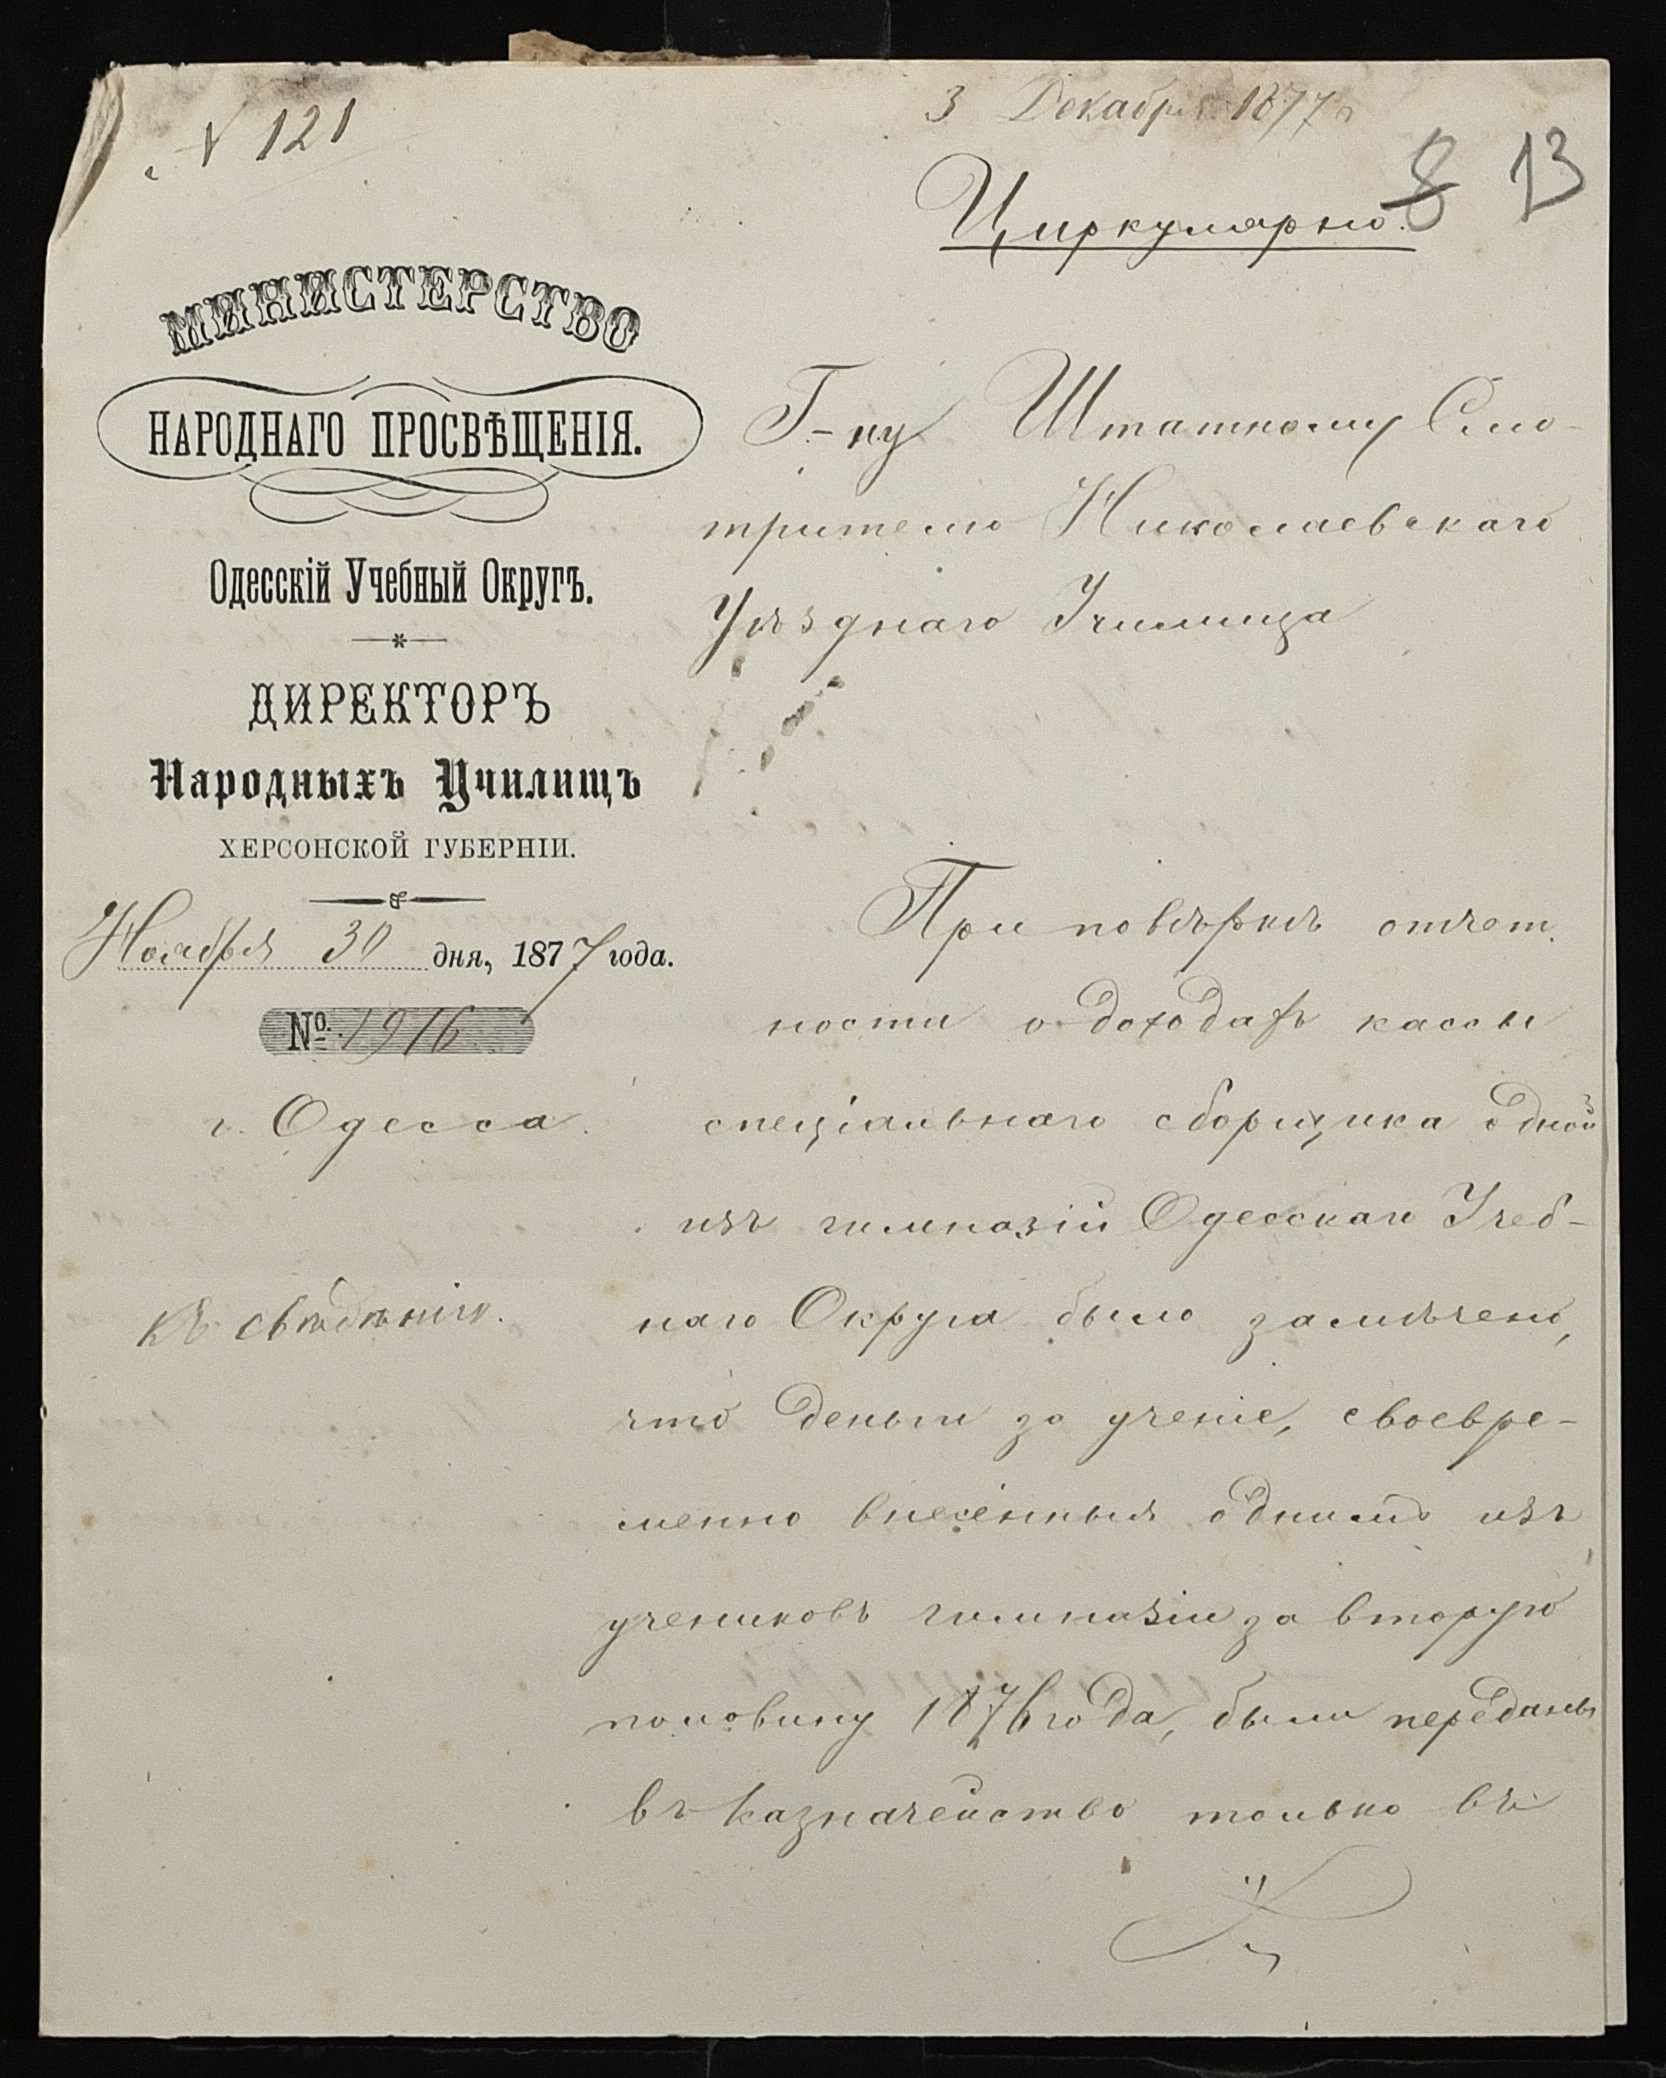 № 121
3 Декабря 1877 г
8 13
Циркулярно.
МИНИСТЕРСТВО
НАРОДНАГО ПРОСВѢЩЕНІЯ.
Одесскій Учебный Округъ.
ДИРЕКТОРЪ
Народныхъ Училищъ
ХЕРСОНСКОЙ ГУБЕРНІИ.
Ноября 30 дня, 1877 года.
№ 1916
г. Одесса.
къ свѣдѣнію.
Г-ну Штатному Смо-
трителю Николаевскаго
Уѣзднаго Училища
При повѣркѣ отчет-
ности о доходахъ кассы
спеціальнаго сборщика одной
изъ гимназій Одесскаго Учеб-
наго Округа было замѣчено,
что деньги за ученіе, своевре-
менно внесенныя однимъ изъ
учениковъ гимназіи за вторую
половину 1876 года, были переданы
въ Казначейство только въ